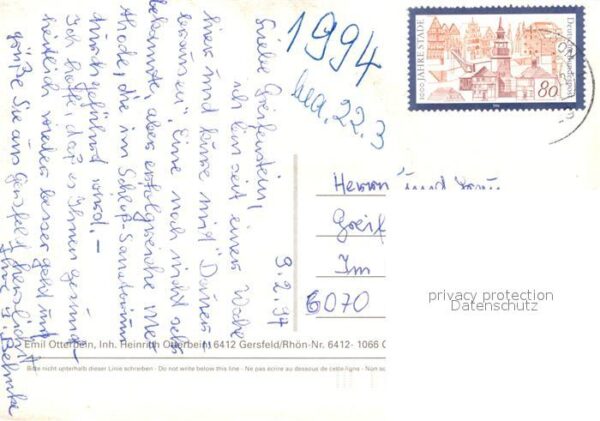 1994
bea. 22.3
Deutsche Bundespost
1000 JAHRE STADE
80
Liebe Greifensteins,
ich bin seit einer Woche
hier und kure mit "Dauer-
brausen". Eine noch nicht sehr
bekannte, aber erfolgreiche Me-
thode, die im Schloß-Sanatorium
durchgeführt wird. –
Ich hoffe, daß es Ihnen gesund-
heitlich wieder besser geht und
grüße Sie aus Gersfeld herzlichst
Ihre
Behnke
9.2.94
Herrn und Frau
Greif
Im
6070
privacy protection
Datenschutz
Emil Otterbein, Inh. Heinrich Otterbein, 6412 Gersfeld/Rhön-Nr. 6412- 1066
Bitte nicht unterhalb dieser Linie schreiben - Do not write below this line - Ne pas ecrire au dessous de cette ligne.